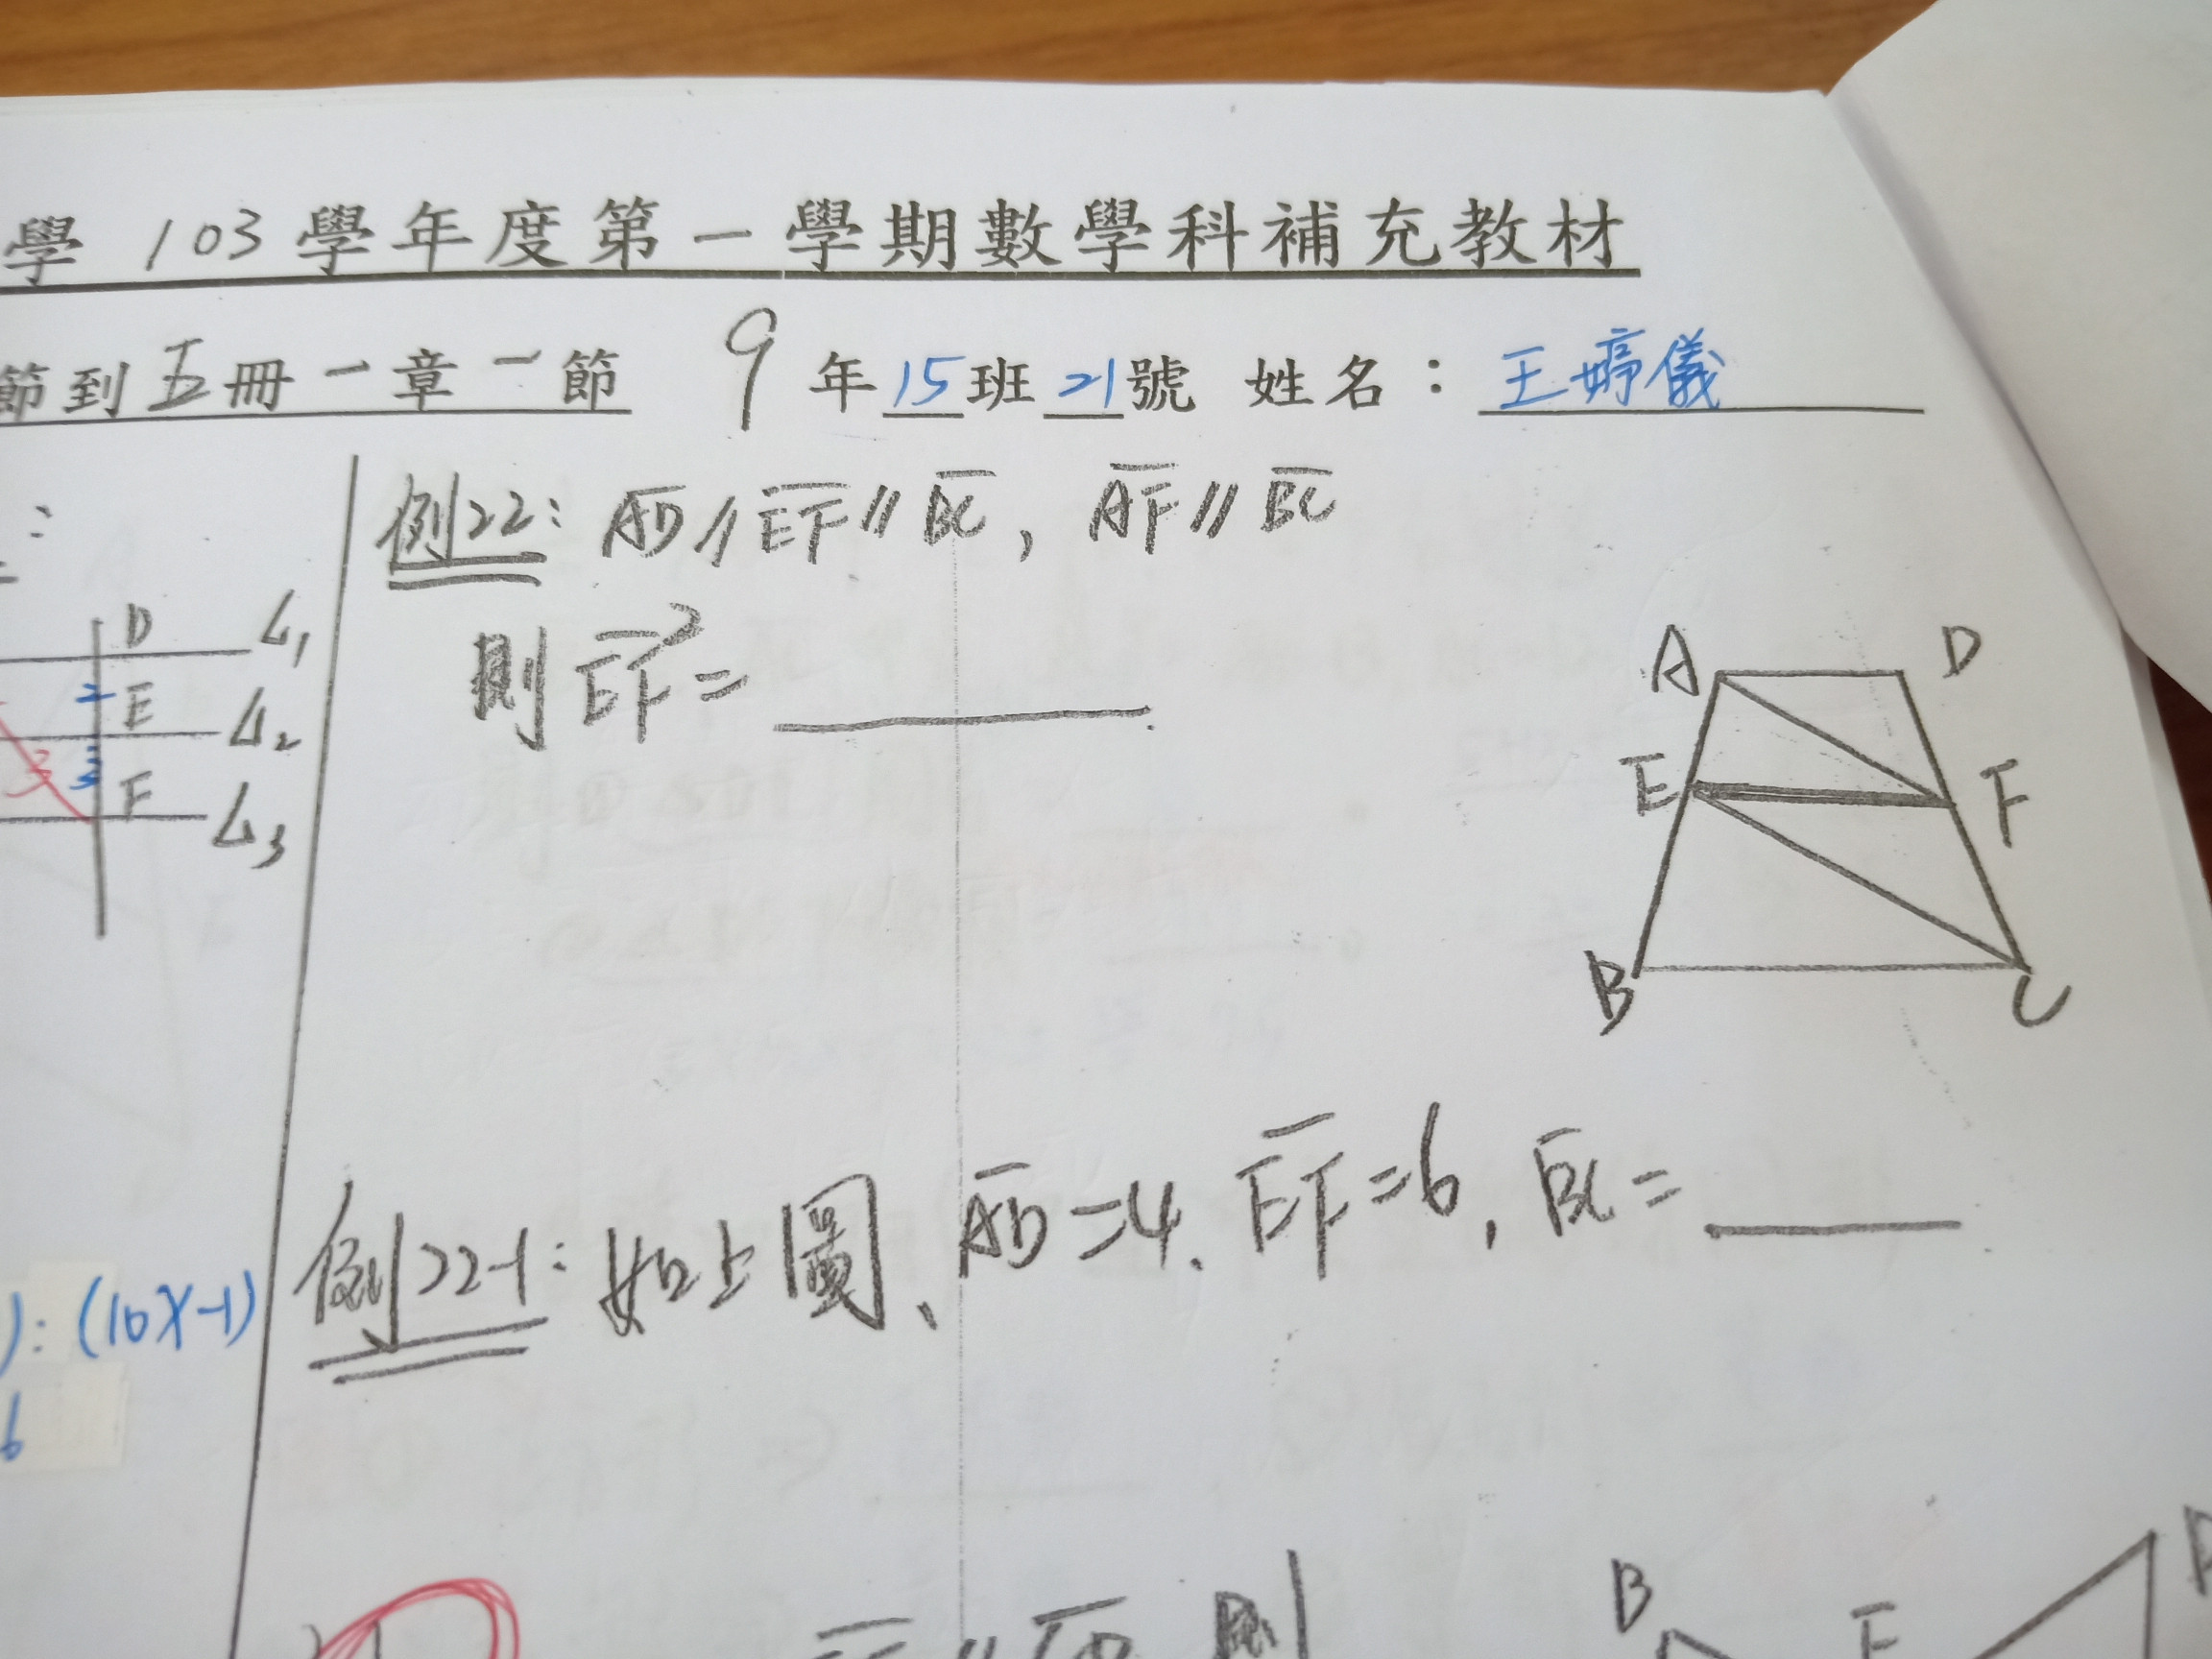 學 103 學年度第一學期數學科補充教材
節到五冊一章一節 9 年 15 班 21 號 姓名：王婷儀
:
D L₁
二 E L₂
3 3 F L₃
): (10X-1)
6
例22: AD // EF // BC, AF // BC
則 EF² = ________.
A D
E F
B C
例22-1: 如上圖、AD=4. EF=6, BC= ______
則
B
E